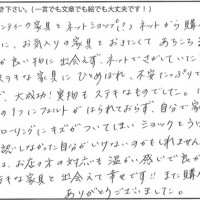 き下さい。(一言でも文章でも絵でも大丈夫です!)
ンティーク家具をネットショップ(?)ネットから購
に、お気入りの家具をおきたくて あちこち
が良い物に出会えず、ネットでさがしていた
ステキな家具に ひとめぼれ、不安たっぷりで
ど、大成功!実物もステキなものでした。
の1つにフェルトがはられておらず、自分で家
ローリングにキズがついてしまい ショックもう
認しなかった自分がいけないのかもしれません
は、お店の方の対応も 温かい感じで良か
ステキな家具と出会えて幸せです!!また購
ありがとうございました。